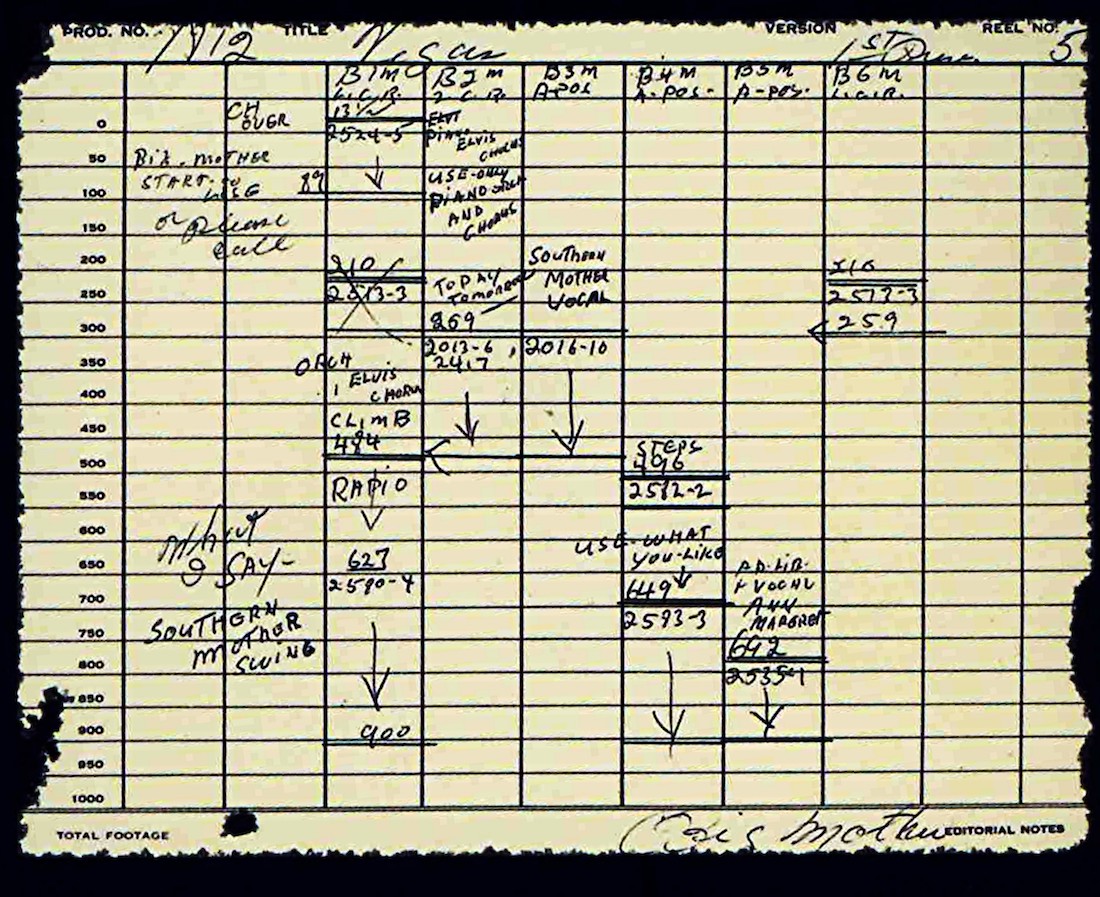 PROD. NO. 1912 TITLE Vegas VERSION 1ST REEL NO. 5
B1M B2M B3M B4M B5M B6M
L.C.R. L.C.R. A-POS A-POS- A-POS. L.C.R.
CH OVER
0
2524-5
PIANO
ELVIS
CHORUS
50
MOTHER
START-TO
USE 89
or please
call
USE-ONLY
PIANO-ORCH
AND
CHORUS
100
150
200
210
2513-3
TODAY
TOMORROW
269
SOUTHERN
MOTHER
VOCAL
2573-3
259
250
300
2013-6
2417
2016-10
350
ORCH
ELVIS
CHORUS
400
CLIMB
484
450
STEPS
496
500
RADIO
2582-2
550
600
what
I SAY-
627
2590-4
USE-WHAT
YOU-LIKE
649
2593-3
AD-LIB-
VOCAL
ANN
MARGRET
692
2535-1
650
700
SOUTHERN
MOTHER
SWING
750
800
850
900
900
950
1000
TOTAL FOOTAGE
Mother EDITORIAL NOTES